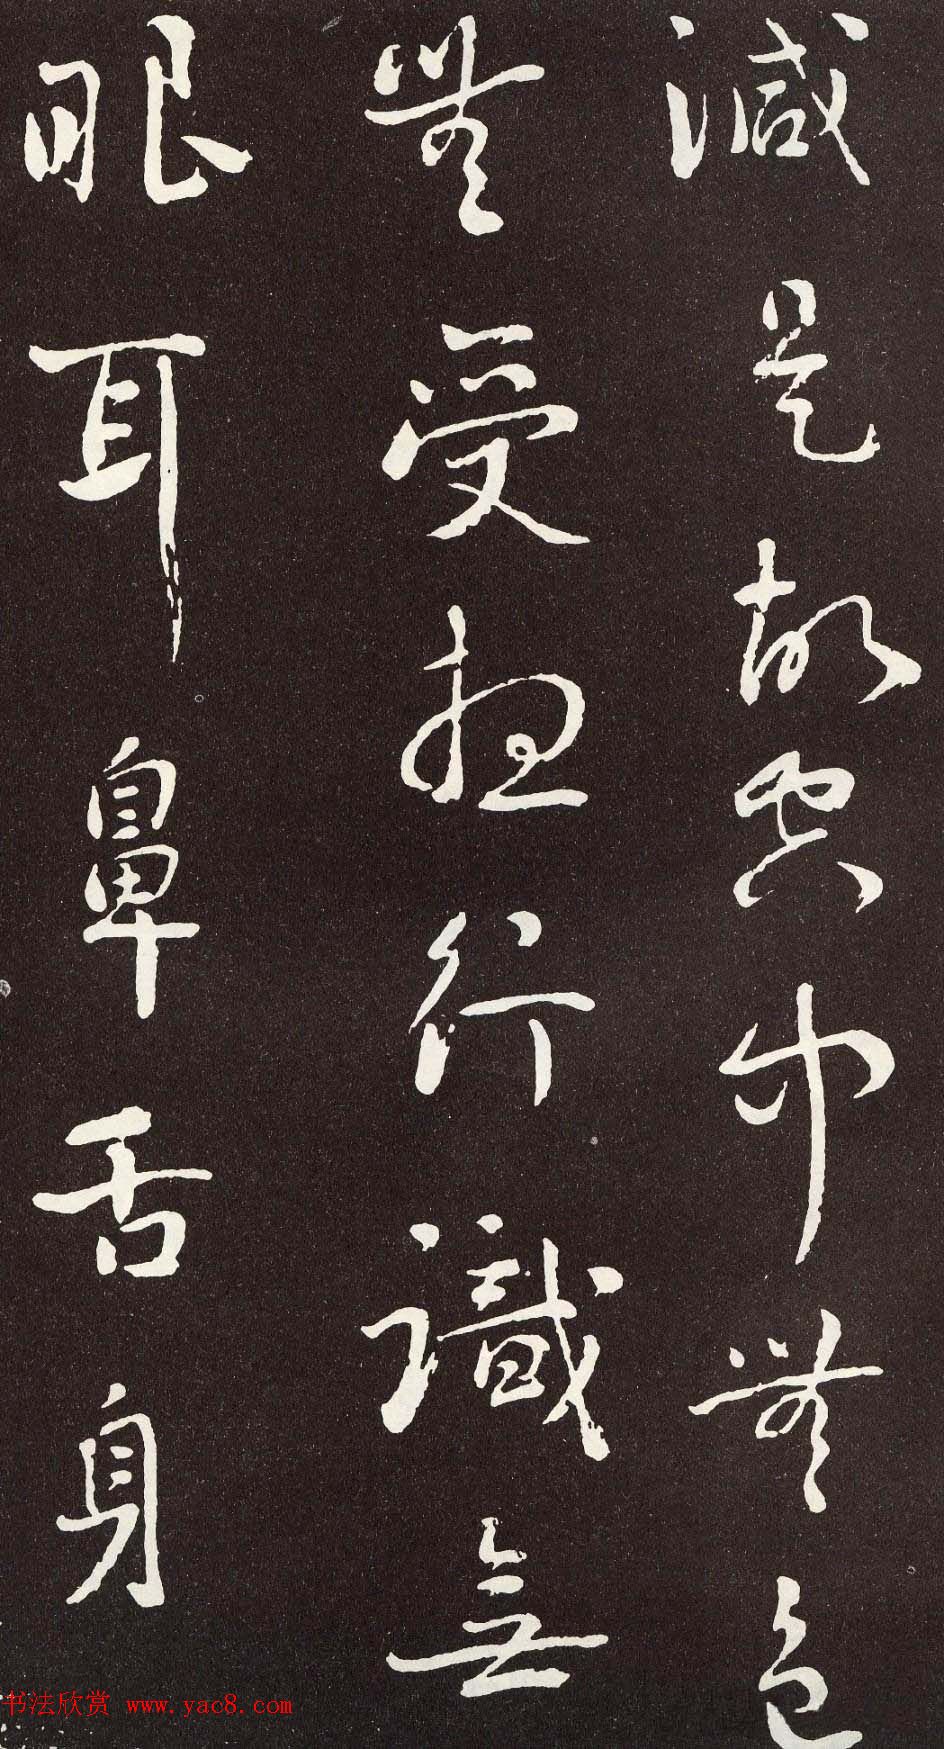 減是故空中無色
無受想行識無
眼耳鼻舌身
书法欣赏 www.yac8.com